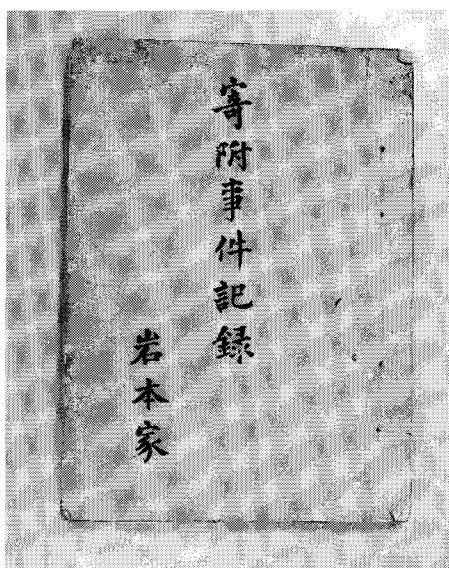 寄附事件記録
岩本家